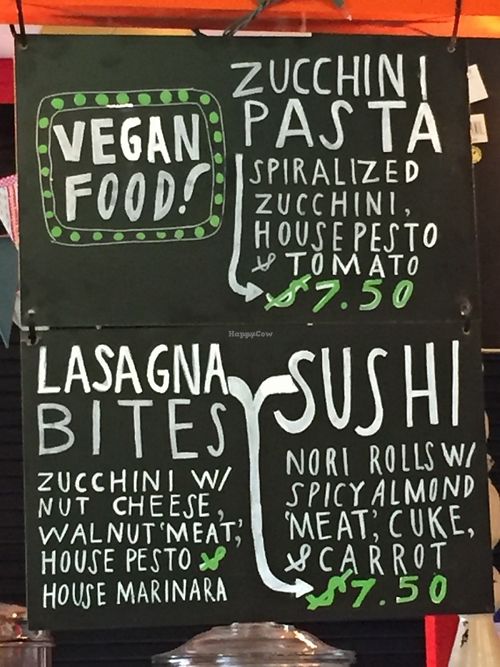 VEGAN
FOOD!
ZUCCHINI
PASTA
SPIRALIZED
ZUCCHINI,
HOUSE PESTO
& TOMATO
$7.50
HappyCow
LASAGNA
BITES
ZUCCHINI W/
NUT CHEESE,
WALNUT 'MEAT',
HOUSE PESTO &
HOUSE MARINARA
SUSHI
NORI ROLLS W/
SPICY ALMOND
'MEAT', CUKE,
& CARROT
$7.50